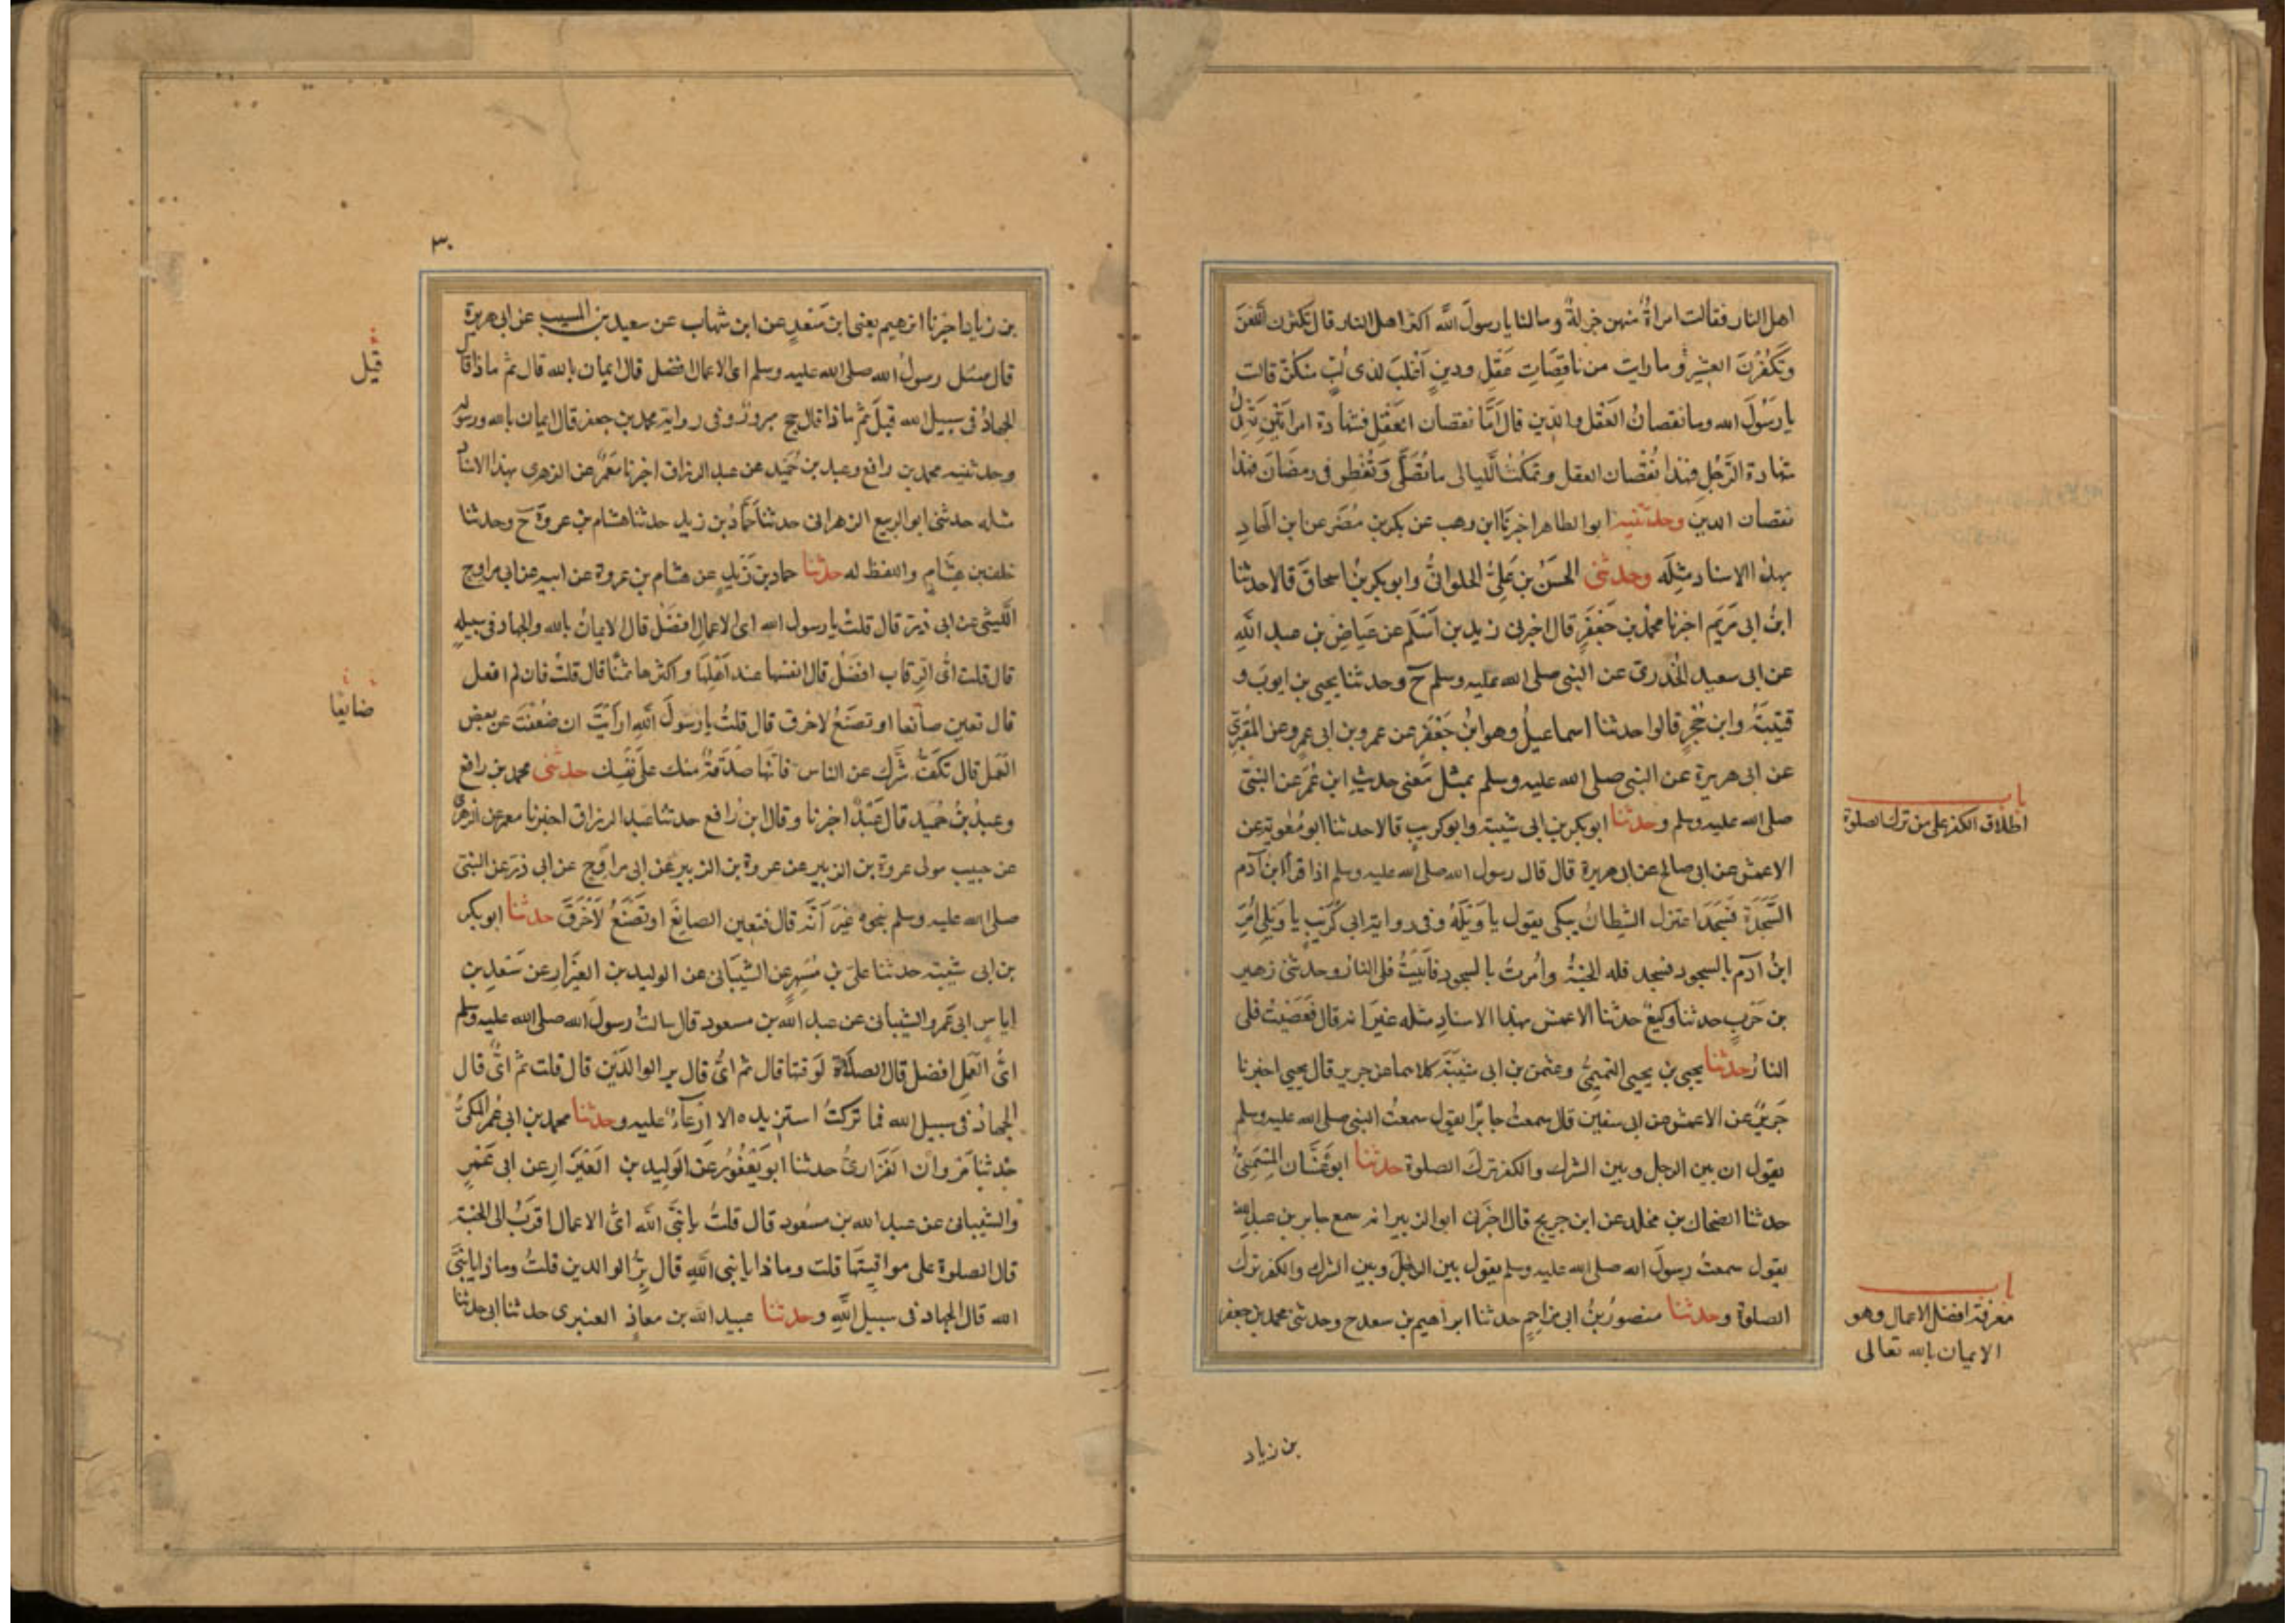 اهل النار فقالت امراةٌ منهن جزلةٌ وما لنا يا رسولَ الله اكثر اهل النار قال تكثرن اللعنَ
وتَكْفُرْنَ العشيرَ وما رايت من ناقِصَاتِ عَقْلٍ ودينٍ اَغْلبَ لذى لُبٍّ منكنّ قالت
يا رَسُولَ الله وما نقصانُ العَقْلِ والدّين قال اَمَّا نقصان العَقْلِ فشهادة امراَتَيْنِ تَعْدِلُ
شهادة الرَّجُلِ فهذا نُقْصَان العقل وتمكُثُ اللّيالى ما تُصَلِّى وَتُفْطِر فى رمضَانَ فهذا
نقصان الدين وحدثنيه ابو الطاهر اخبرنا ابن وهب عن بكر بن مُضَر عن ابن الهَادِ
بهذا الاسناد مِثْلَه وحدثنى الحسَنُ بن عَلِىٍّ الحلوانىُّ وابو بكر بنُ اسحاقَ قالا حدثنا
ابنُ ابى مَرْيَم اخبرنا محمدُ بن جَعْفَرٍ قال اخبرنى زيد بن اَسْلَم عن عِيَاضِ بن عبد اللهِ
عن ابى سعيد الخُدرىّ عن النبى صلى الله عليه وسلم ح وحدثنا يحيى بن ايوبَ و
قتيبَةُ وابن حُجْرٍ قالوا حدثنا اسماعيلُ وهو ابنُ جَعْفَرٍ عن عمرو بن ابى عمرو عن المقبُرِىِّ
عن ابى هريرة عن النبى صلى الله عليه وسلم بمثل مَعْنى حديثِ ابن عُمَرَ عن النبىّ
باب
صلى الله عليه وسلم وحدثنا ابو بكر بن ابى شيبة وابو كريبٍ قالا حدثنا ابو مُعٰوية عن
اطلاق الكفر على من ترك الصلوة
الاعمش عن ابى صالح عن ابى هريرة قال قال رسول الله صلى الله عليه وسلم اذا قرأ ابن آدم
السَّجْدَةَ فَسَجَدَ اعتزل الشيطانُ يبكى يقول يا وَيْلَهُ وفى رواية ابى كُرَيْبٍ يا وَيْلِى اُمِرَ
ابنُ آدَمَ بالسجود فسجد فله الجنةُ واُمرتُ بالسجود فاَبَيْتُ فلى النارُ وحدثنى زهير
بن حَرْبٍ حدثنا وكيعٌ حدثنا الاعمش بهذا الاسنادِ مثله غيرَ انه قال فَعَصَيْتُ فلى
النارُ حدثنا يحيى بن يحيى التميمىُّ وعثمن بن ابى شَيْبَةَ كلاهما عن جرير قال يحيى اخبرنا
جَريرٌ عن الاعمش عن ابى سفين قال سمعتُ جابرًا يقول سمعتُ النبى صلى الله عليه وسلم
يقول ان بين الرجل وبين الشرك والكفر تركَ الصلوة حدثنا ابو غَسَّان المِسْمَعِىُّ
حدثنا الضحاك بن مخلد عن ابن جريج قال اخبرنى ابو الزبير انه سمع جابر بن عبد الله
يقول سمعتُ رسولَ الله صلى الله عليه وسلم يقول بين الرجُلِ وبين الشرك والكفر ترك
باب
الصلوة وحدثنا منصورُ بنُ ابى مزاحِمٍ حدثنا ابراهيم بن سعد ح وحدثنى محمد بن جعفر
معرفة افضل الاعمال وهو
الايمان بالله تعالى
بن زياد
٣٠
بن زياد اخبرنا ابرهيم يعنى ابن سَعْدٍ عن ابن شهاب عن سعيد بن المسيب عن ابى هريرة
قال سئل رسولُ الله صلى الله عليه وسلم اى الاعمال افضل قال ايمان بالله قال ثم ماذا قال
قيل
الجهادُ فى سبيل الله قيلَ ثم ماذا قال حج مبرورٌ وفى رواية محمد بن جعفر قال ايمان بالله ورسوله
وحدثنيه محمد بن رافع وعبد بن حُمَيْد عن عبد الرزاق اخبرنا مَعْمَرٌ عن الزهرى بهذا الاسناد
مثله حدثنى ابو الربيع الزهرانى حدثنا حَمَّادُ بن زيد حدثنا هشام بن عروة ح وحدثنا
خلف بن هِشَامٍ واللفظ له حدثنا حماد بن زَيْدٍ عن هشام بن عروة عن ابيه عن ابى مراوح
اللَّيثى عن ابى ذرّ قال قلتُ يا رسول الله اىّ الاعمالِ افضَلُ قال الايمانُ بالله والجهاد فى سبيلهِ
قال قلت اىُّ الرّقاب افضَلُ قال انفسُها عند اَهْلِهَا واكثرُها ثمنًا قال قلتُ فان لم افعل
ضايعًا
قال تعين صانعا او تصنَعُ لاخرق قال قلتُ يا رسولَ اللهِ اراَيْتَ ان ضَعُفْتُ عن بعض
العَمل قال تكفُّ شَرَّك عن الناس فانّها صدَقةٌ منك على نَفْسِك حدثنى محمد بن رافع
وعبدُ بنُ حُمَيد قال عَبْدٌ اخبرنا وقال ابن رافع حدثنا عبد الرزاق اخبرنا معمر عن الزهرى
عن حبيب مولى عروة بن الزبير عن عروة بن الزبير عن ابى مراوِح عن ابى ذرّ عن النبى
صلى الله عليه وسلم بنحوه غيرَ اَنّه قال فتعين الصانِعَ او تَصْنَعُ لاَخْرَقَ حدثنا ابو بكر
بن ابى شيبة حدثنا علىّ بن مُسْهِرٍ عن الشَّيبَانى عن الوليد بن العَيْزَارِ عن سَعْدِ بن
اياسٍ ابى عَمرو الشيبانى عن عبد الله بن مسعود قال سالتُ رسولَ الله صلى الله عليه وسلم
اىُّ العَمَلِ افضل قال الصلَاةُ لوَقتها قال ثم اىُّ قال بر الوالدَيْن قال قلت ثم اىٌّ قال
الجهادُ فى سبيل الله فما تركتُ استزيده الا ارعاءً عليه وحدثنا محمد بن ابى عُمَر المكىُّ
حدثنا مَرْوانُ الفَزَارىُّ حدثنا ابو يَعْفُورٍ عن الوَلِيد بن العَيْزَارِ عن ابى عَمْرٍ
والشيبانى عن عبد الله بن مسعُود قال قلتُ يا نبىَّ الله اىُّ الاعمال اقرَبُ الى الجنة
قال الصلوة على مواقيتِهَا قلت وماذا يا نبى اللهِ قال بِرُّ الوالدين قلتُ وماذا يا نبىَّ
الله قال الجهاد فى سبيل اللهِ وحدثنا عبيد الله بن معاذٍ العنبرى حدثنا ابى حدثنا